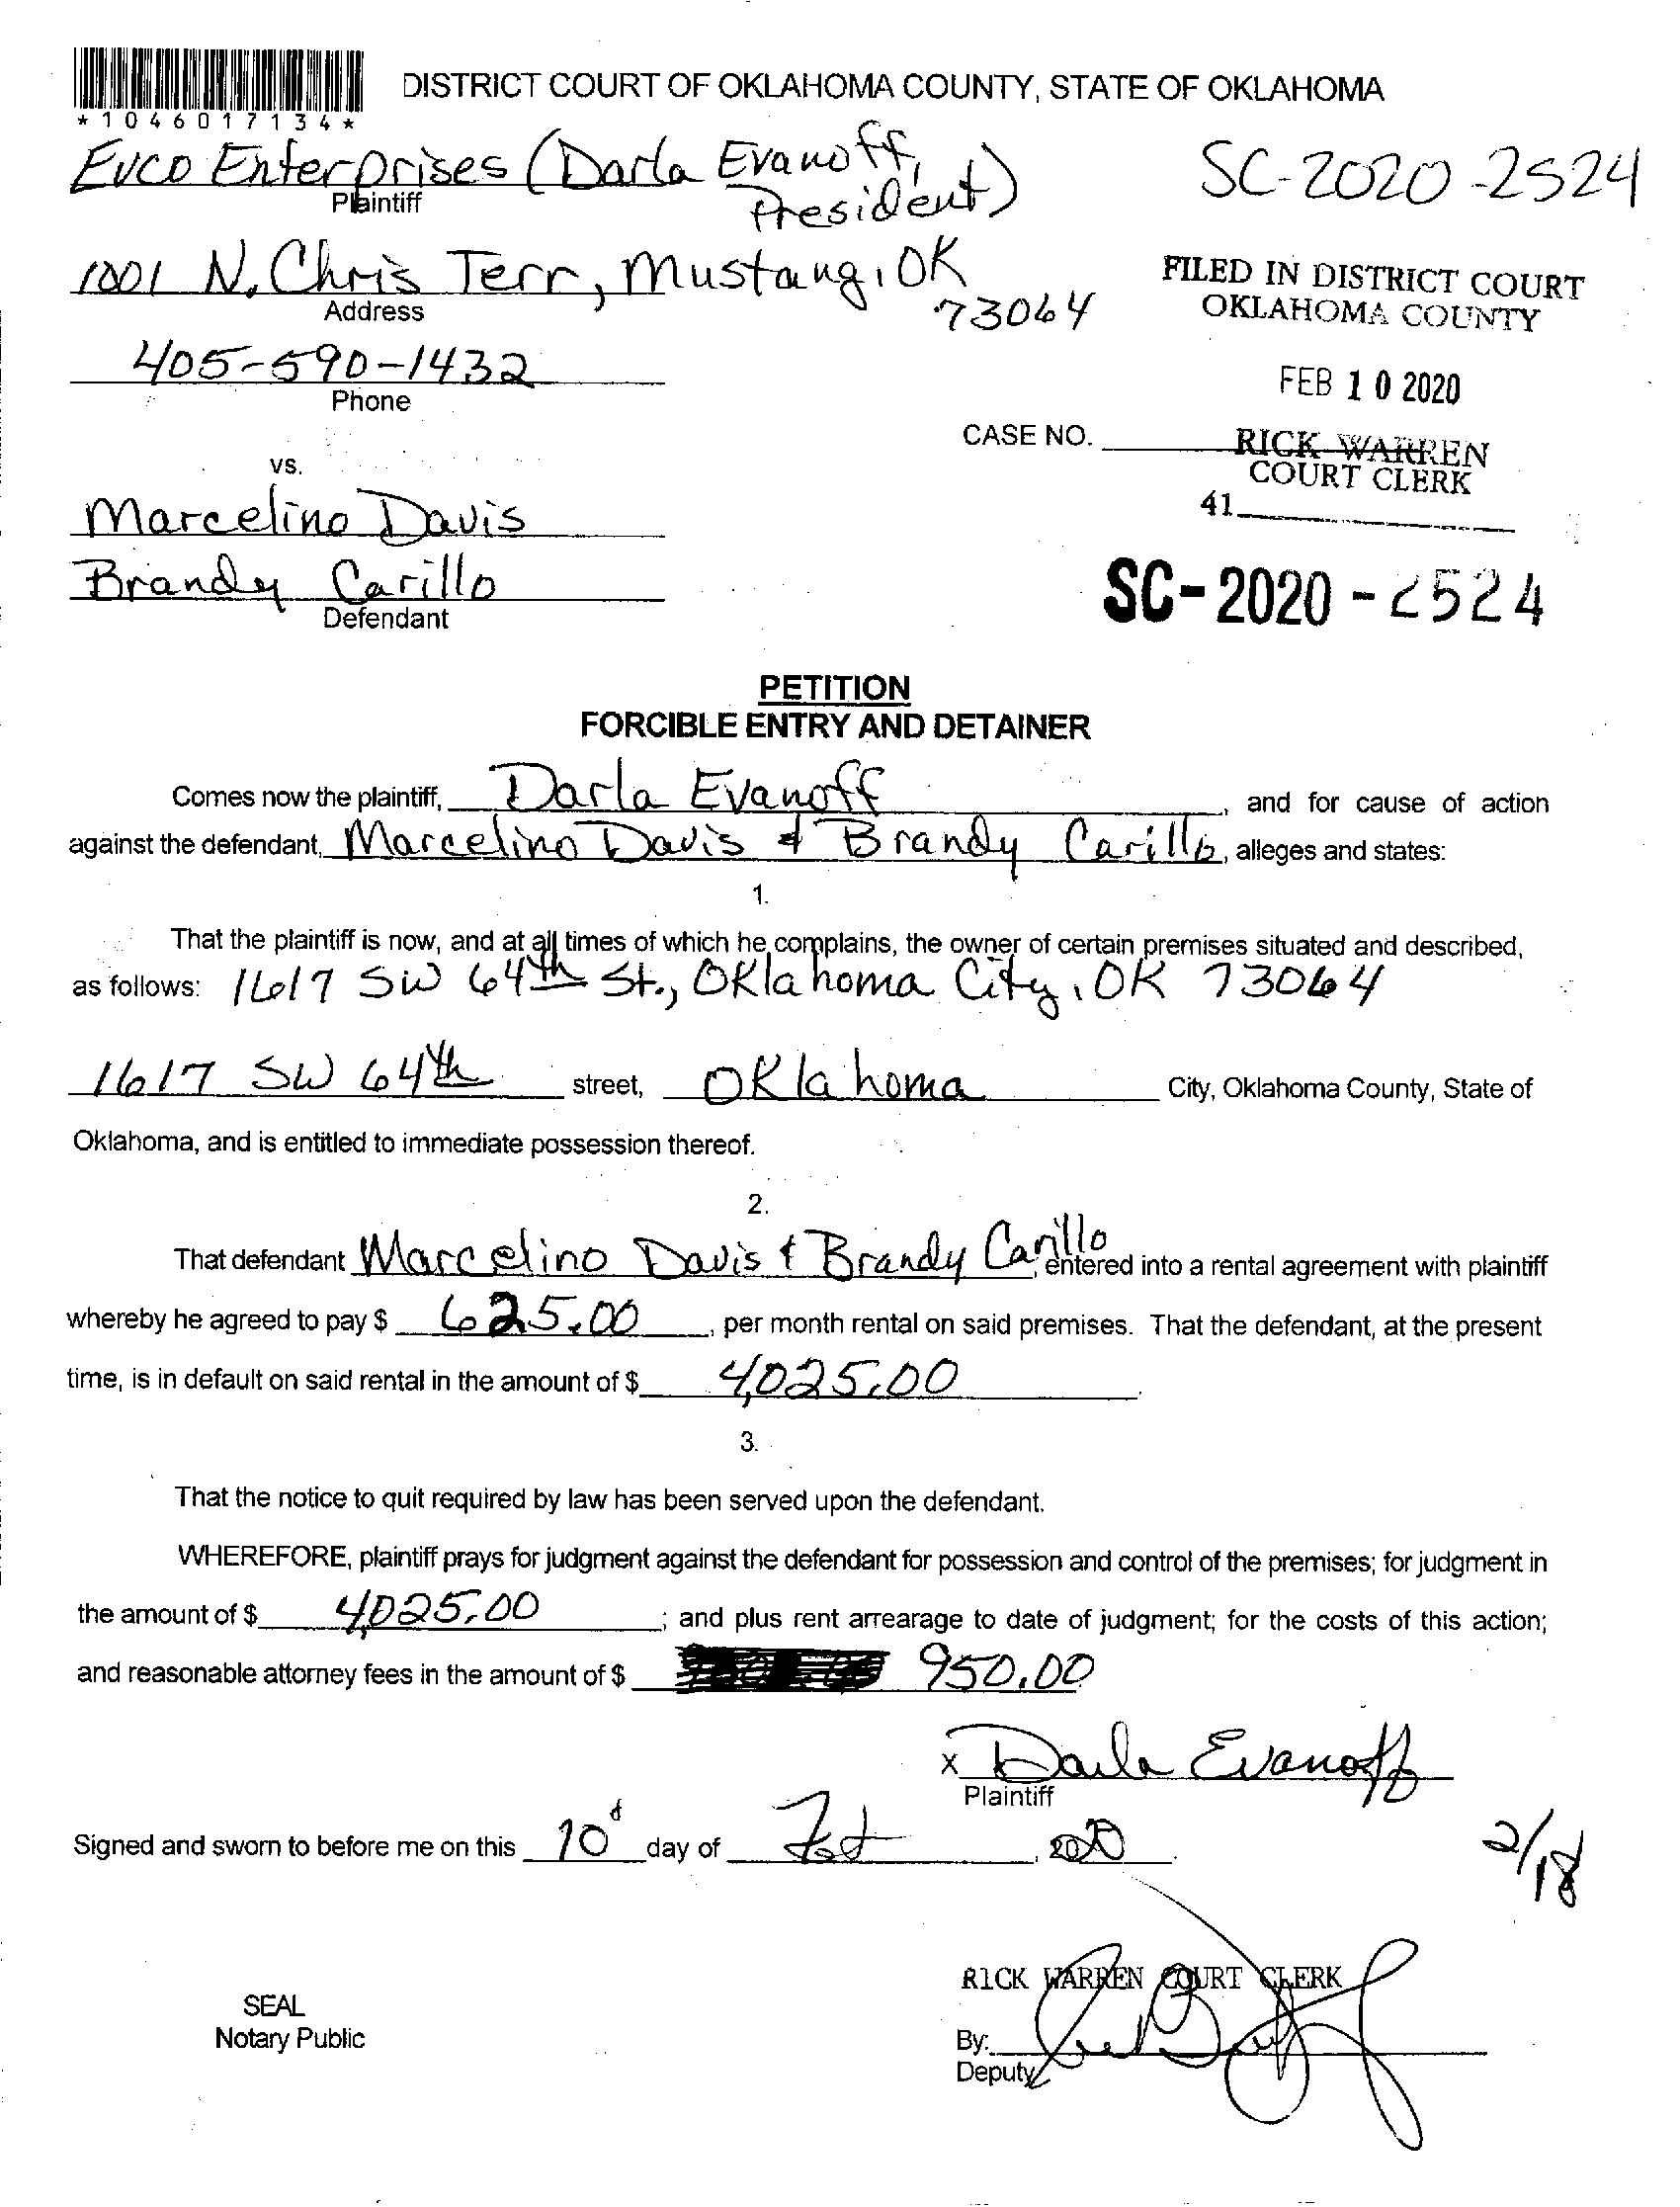 *1046017134*
DISTRICT COURT OF OKLAHOMA COUNTY, STATE OF OKLAHOMA
Evco Enterprises (Darla Evanoff, President)
SC-2020-2524
Plaintiff
1001 N. Chris Terr, Mustang, OK 73064
Address
FILED IN DISTRICT COURT
OKLAHOMA COUNTY
405-590-1432
Phone
FEB 10 2020
CASE NO.
RICK WARREN
COURT CLERK
41
vs.
Marcelino Davis
Brandy Carillo
Defendant
SC-2020-2524
PETITION
FORCIBLE ENTRY AND DETAINER
Comes now the plaintiff, Darla Evanoff, and for cause of action
against the defendant, Marcelino Davis & Brandy Carillo, alleges and states:
1.
That the plaintiff is now, and at all times of which he complains, the owner of certain premises situated and described,
as follows: 1617 SW 64th St., Oklahoma City, OK 73064
1617 SW 64th street, Oklahoma City, Oklahoma County, State of
Oklahoma, and is entitled to immediate possession thereof.
2.
That defendant Marcelino Davis & Brandy Carillo, entered into a rental agreement with plaintiff
whereby he agreed to pay $ 625.00, per month rental on said premises. That the defendant, at the present
time, is in default on said rental in the amount of $ 4,025.00.
3.
That the notice to quit required by law has been served upon the defendant.
WHEREFORE, plaintiff prays for judgment against the defendant for possession and control of the premises; for judgment in
the amount of $ 4,025.00; and plus rent arrearage to date of judgment; for the costs of this action;
and reasonable attorney fees in the amount of $ 950.00
x Darla Evanoff
Plaintiff
Signed and sworn to before me on this 10 day of Feb, 2020.
2/18
RICK WARREN COURT CLERK
SEAL
Notary Public
By:
Deputy